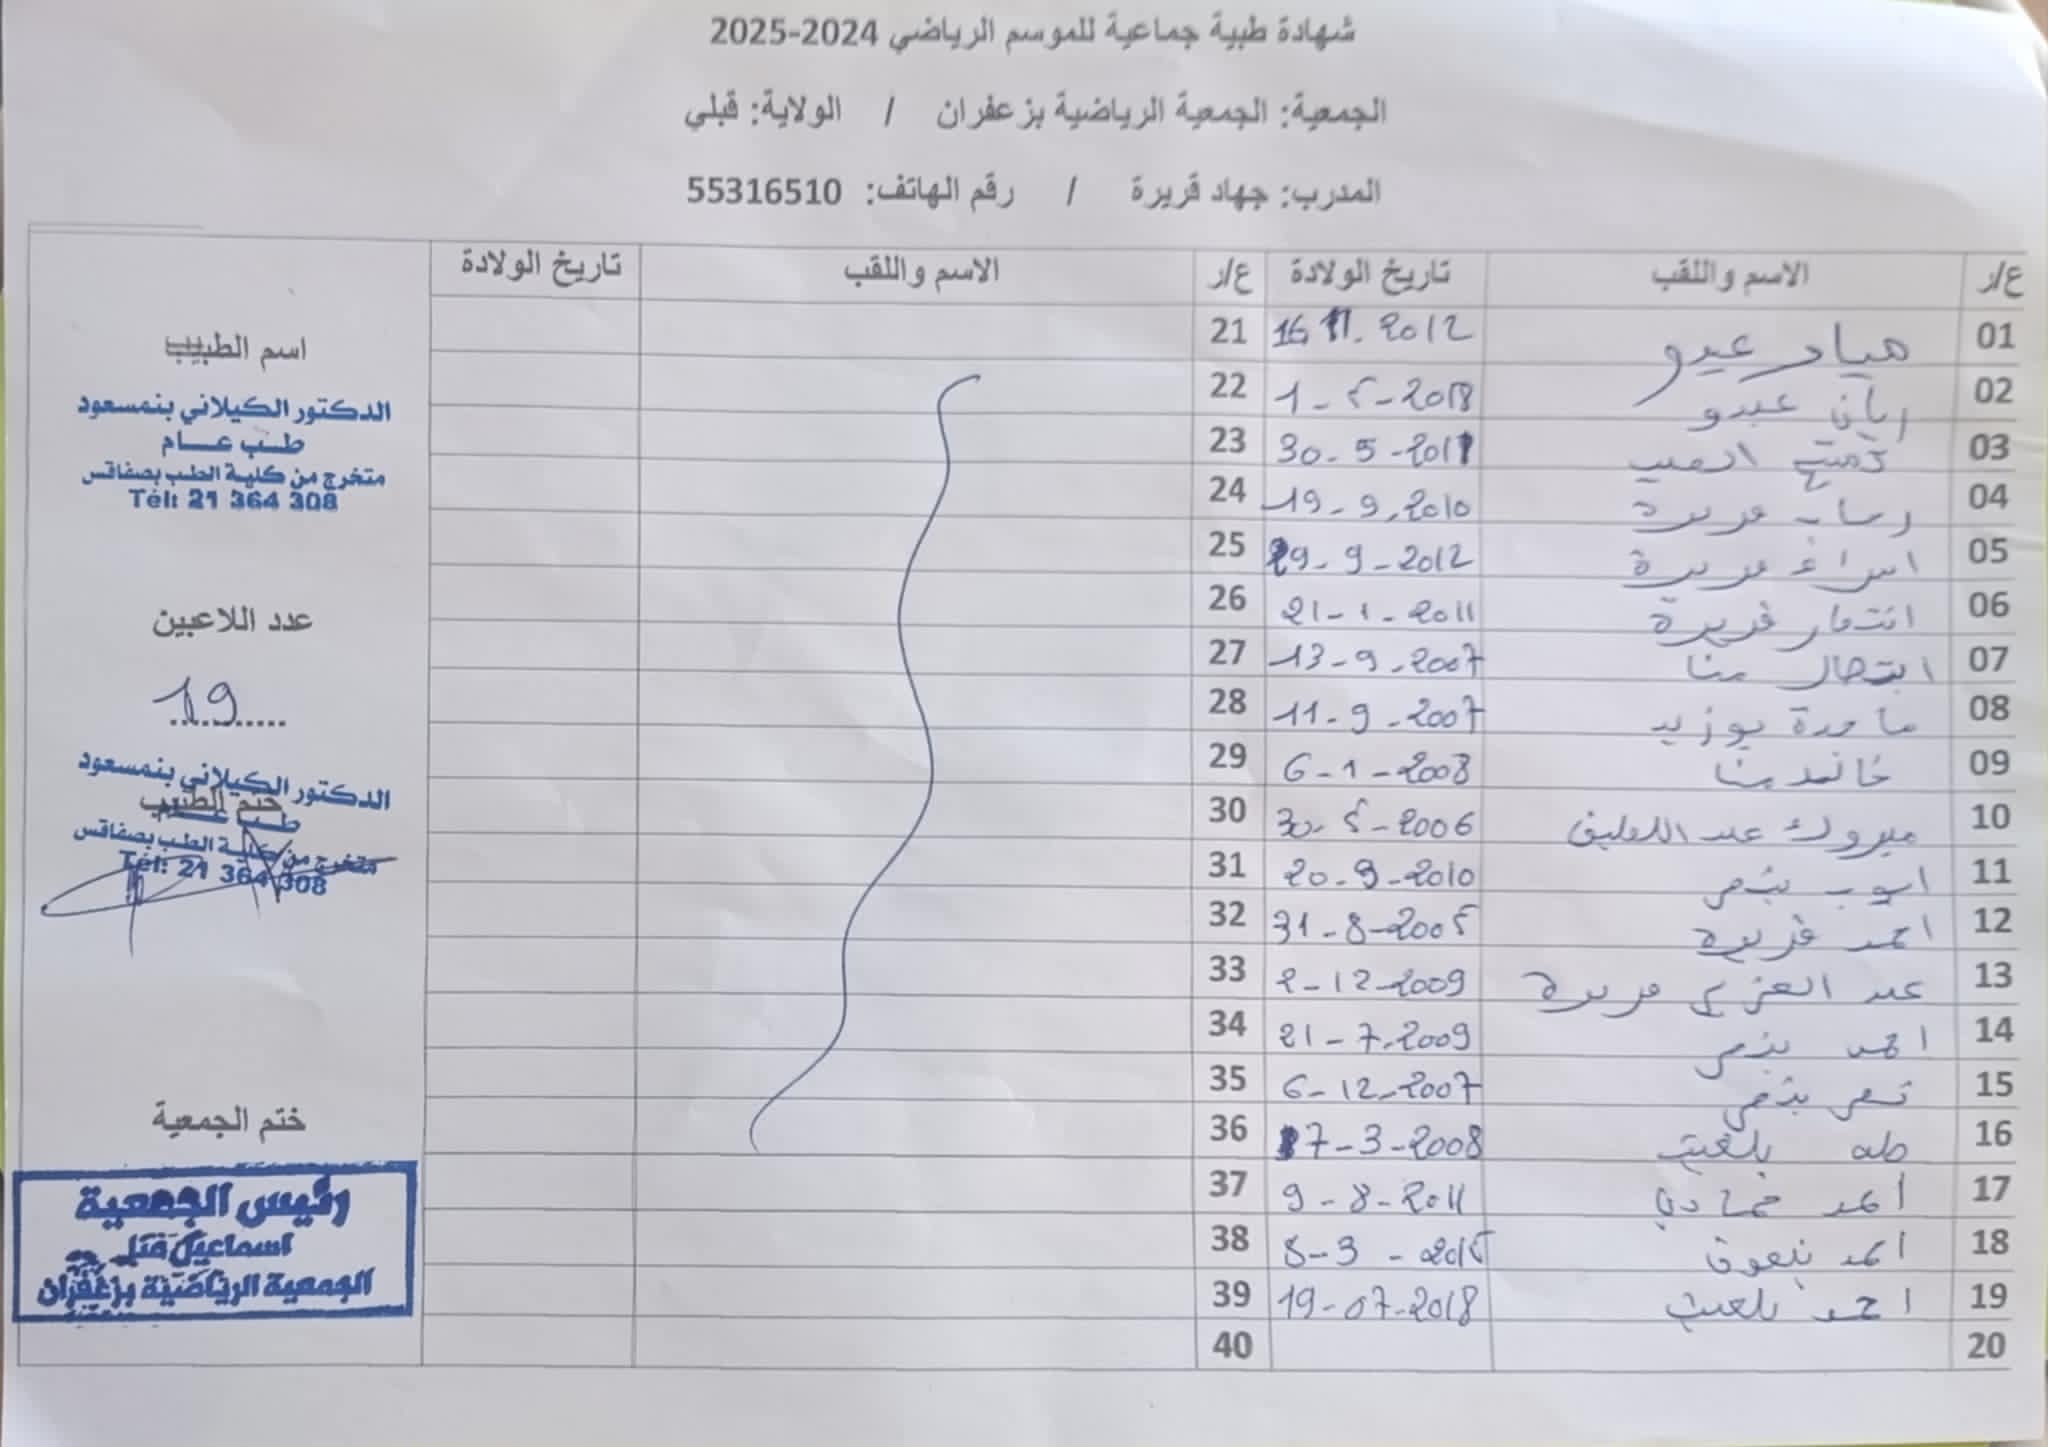 شهادة طبية جماعية للموسم الرياضي 2024-2025
الجمعية: الجمعية الرياضية بزعفران / الولاية: قبلي
المدرب: جهاد قريرة / رقم الهاتف: 55316510
ع/ر الاسم واللقب تاريخ الولادة ع/ر الاسم واللقب تاريخ الولادة
01 عبدو 16 11. 2012 21
02 ريان عبدو 1-5-2018 22
03 30-5-2011 23
04 رحاب قريرة 19-9-2010 24
05 اسراء قريرة 29-9-2012 25
06 انتصار قريرة 21-1-2011 26
07 ابتهال 13-9-2007 27
08 ماجدة بوزيد 11-9-2007 28
09 6-1-2008 29
10 مبروك عبد اللطيف 30-5-2006 30
11 ايوب 20-9-2010 31
12 احمد قريرة 31-8-2005 32
13 عبد العزيز قريرة 2-12-2009 33
14 احمد 21-7-2009 34
15 6-12-2007 35
16 طه بلغيث 17-3-2008 36
17 أحمد حمادي 9-8-2011 37
18 احمد 8-3-2015 38
19 احمد بلغيث 19-07-2018 39
20 40
اسم الطبيب
الدكتور الكيلاني بنمسعود
طب عام
متخرج من كلية الطب بصفاقس
Tél: 21 364 308
عدد اللاعبين
19
الدكتور الكيلاني بنمسعود
ختم الطبيب
طب عام
متخرج من كلية الطب بصفاقس
Tél: 21 364 308
ختم الجمعية
رئيس الجمعية
اسماعيل
الجمعية الرياضية بزعفران